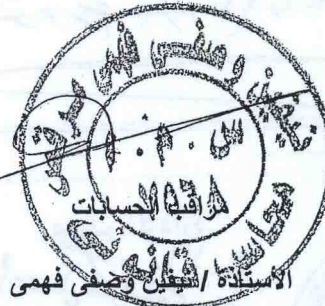 نيفين وصفى فهمى
س.م.م
محاسب قانونى
مراقب الحسابات
الاستاذه / نيفين وصفى فهمى